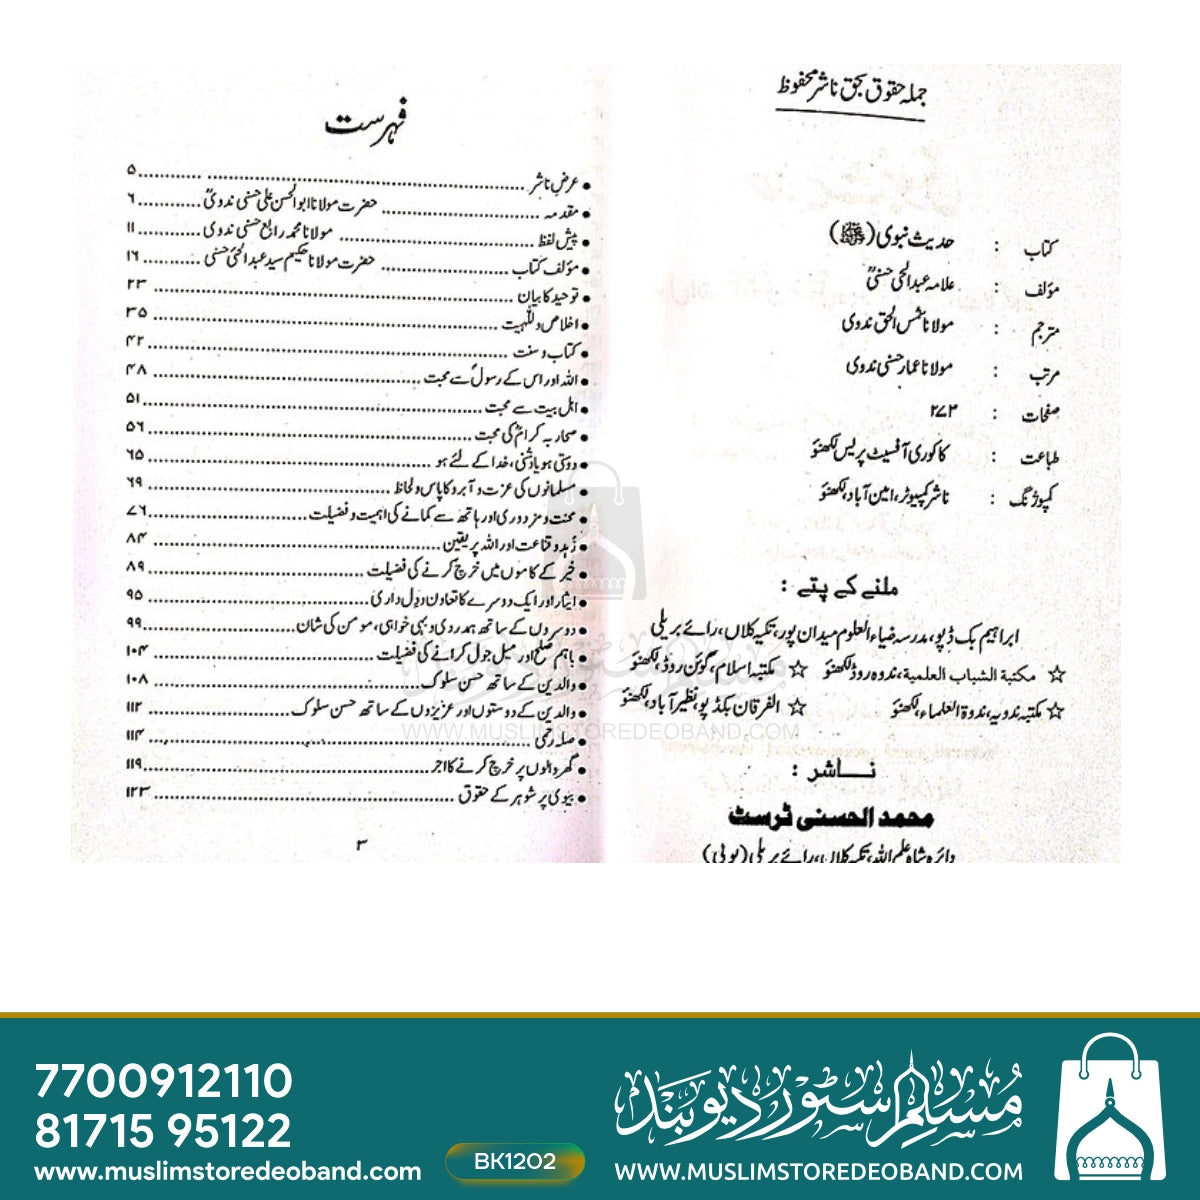 جملہ حقوق بحق ناشر محفوظ
کتاب : حدیث نبوی (ﷺ)
مؤلف : علامہ عبدالحی حسنیؒ
مترجم : مولانا شمس الحق ندوی
مرتب : مولانا عمار حسنی ندوی
صفحات : ۲۷۳
طباعت : کاکوری آفسیٹ پریس لکھنؤ
کمپوزنگ : ناشر کمپیوٹر، امین آباد، لکھنؤ
ملنے کے پتے :
ابراہیم بک ڈپو، مدرسہ ضیاء العلوم میدان پور، تکیہ کلاں، رائے بریلی
☆ مکتبة الشباب العلمیة، ندوہ روڈ لکھنؤ ☆ مکتبہ اسلام، گوئن روڈ، لکھنؤ
☆ مکتبہ ندویہ، ندوۃ العلماء، لکھنؤ ☆ الفرقان بکڈپو، نظیر آباد، لکھنؤ
ناشر :
محمد الحسنی ٹرسٹ
دائرہ شاہ علم اللہ، تکیہ کلاں، رائے بریلی (یوپی)
فہرست
• عرض ناشر ۵
• مقدمہ حضرت مولانا ابوالحسن علی حسنی ندویؒ ۶
• پیش لفظ مولانا محمد رابع حسنی ندوی ۱۱
• مؤلف کتاب حضرت مولانا حکیم سید عبدالحئ حسنی ۱۶
• توحید کا بیان ۲۳
• اخلاص و للّٰہیت ۳۵
• کتاب و سنت ۴۲
• اللہ اور اس کے رسولؐ سے محبت ۴۸
• اہل بیت سے محبت ۵۱
• صحابہ کرامؓ کی محبت ۵۶
• دوستی ہو یا دشمنی، خدا کے لئے ہو ۶۵
• مسلمانوں کی عزت و آبرو کا پاس و لحاظ ۶۹
• محنت و مزدوری اور ہاتھ سے کمانے کی اہمیت و فضیلت ۷۶
• زُہد و قناعت اور اللہ پر یقین ۸۴
• خیر کے کاموں میں خرچ کرنے کی فضیلت ۸۹
• ایثار اور ایک دوسرے کا تعاون و دل داری ۹۵
• دوسروں کے ساتھ ہمدردی و بہی خواہی، مومن کی شان ۹۹
• باہم صلح اور میل جول کرانے کی فضیلت ۱۰۴
• والدین کے ساتھ حسن سلوک ۱۰۸
• والدین کے دوستوں اور عزیزوں کے ساتھ حسن سلوک ۱۱۲
• صلہ رحمی ۱۱۴
• گھر والوں پر خرچ کرنے کا اجر ۱۱۹
• بیوی پر شوہر کے حقوق ۱۲۳
۳
WWW.MUSLIMSTOREDEOBAND.COM
7700912110
81715 95122
www.muslimstoredeoband.com
BK1202
مسلم سٹور دیوبند
WWW.MUSLIMSTOREDEOBAND.COM